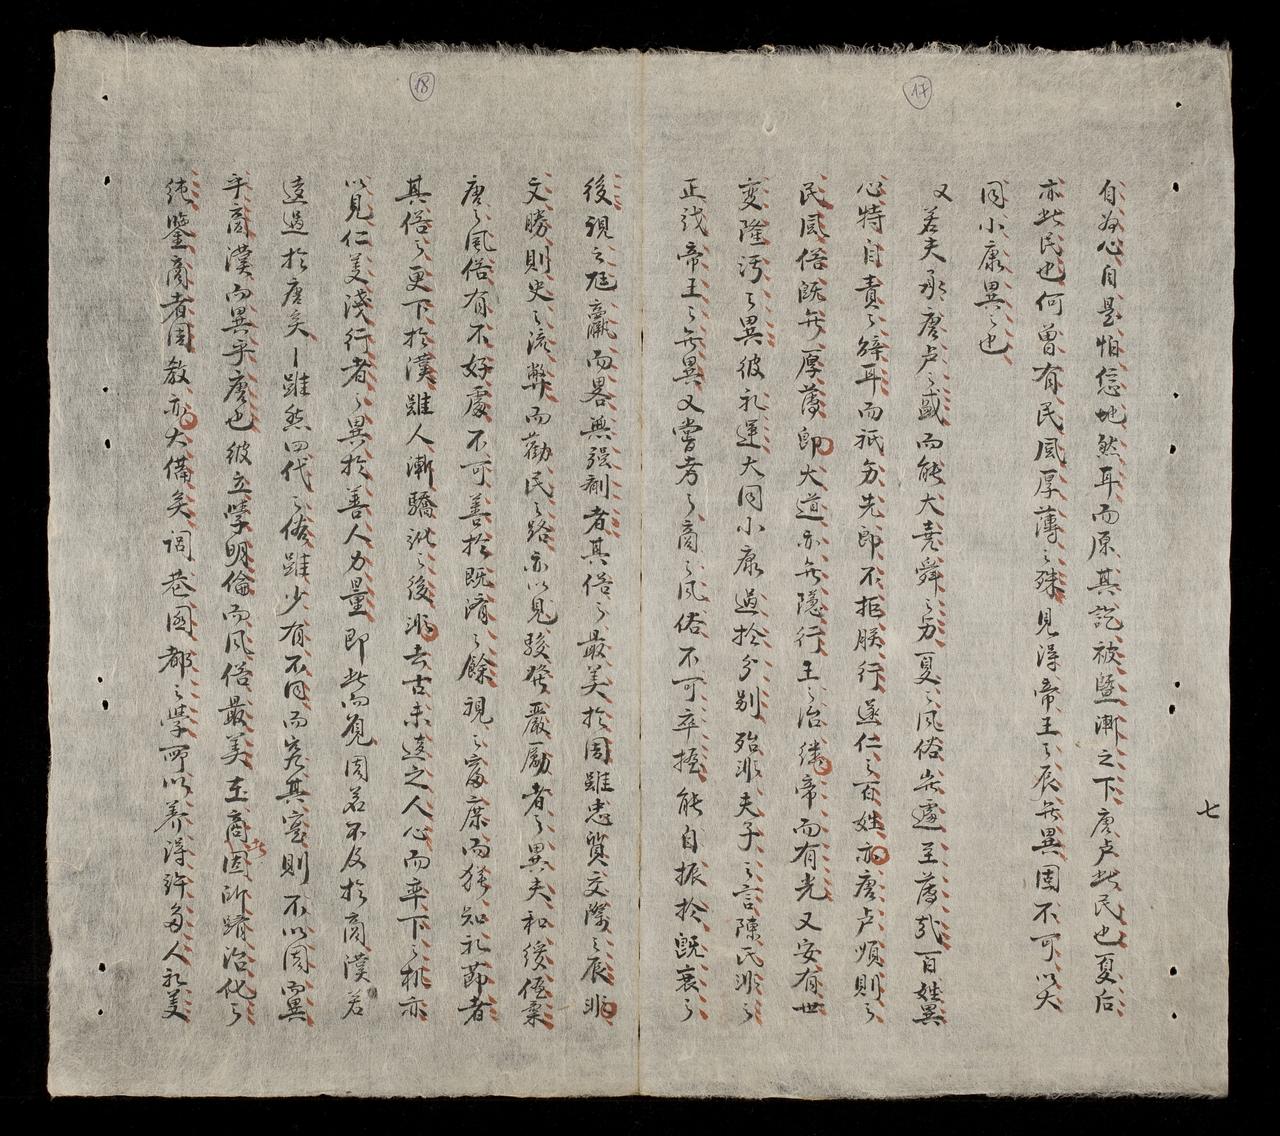 17
自為心自是怕恁地然耳而原其訖被暨漸之下唐卢此民也夏后
亦此民也何曾有民風厚薄之殊見得帝王之辰無異固不可以大
同小康異之也
又若夫承唐卢之盛而能大堯舜之另夏之风俗無遽至薄哉百姓異
心特自責之辞耳而祇另先即不拒朕行遂仁之百姓亦唐卢順則之
民風俗既無厚薄即大道亦無隱行王之治継帝而有光又安有世
变隆污之異彼礼運大同小康過扵分别殆非夫子之言陳氏非之
正彣帝王之無異又嘗考之商之风俗不可卒抠能自振扵既衰之
七
18
後視之尪羸而畧無强剤者其俗之最美扵周雖忠質交際之辰非
文勝則史之流弊而勸民之路亦以見駿發嚴厲者之異夫和緩侄柔
唐之風俗有不好處不可善扵既濟之餘視之富庶而猶知礼莭者
其俗之更下扵漢雖人漸驕訛之後非去古未遠之人心而卒下之机亦
以見仁美淺行者之異扵善人力量即此而覌周若不及扵商漢若
遠過扵唐矣雖然四代之俗雖少有不同而究其寔則不以周而異
乎商漢而異乎唐也彼立學明倫而风俗最美在商周所躋治化之
純鑒商者周教亦大備矣闾巷国都之學所以养得許多人礼美